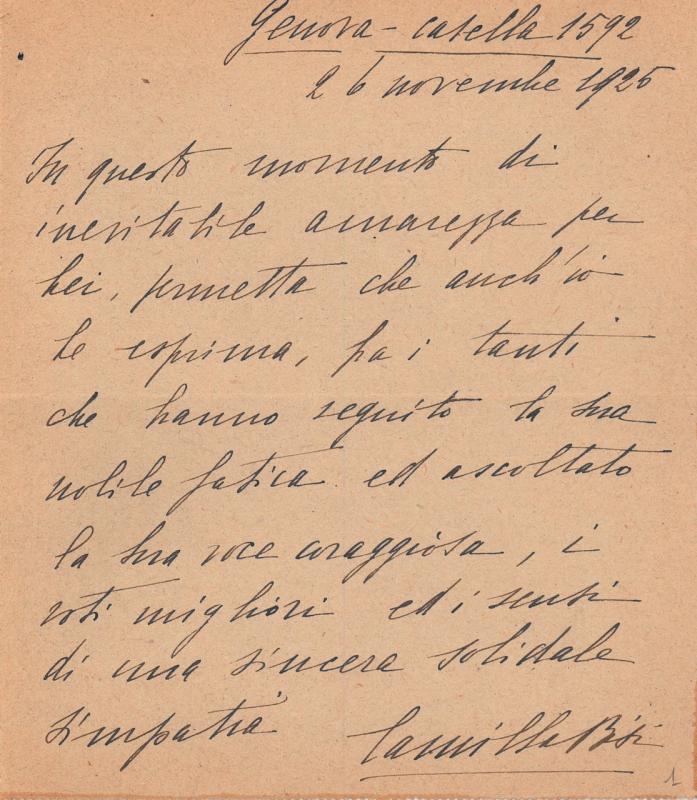 Genova - casella 1592
26 novembre 1925
In questo momento di
inevitabile amarezza per
Lei, permetta che anch'io
Le esprima, fra i tanti
che hanno seguito la sua
nobile fatica ed ascoltato
la sua voce coraggiosa, i
voti migliori ed i sensi
di una sincera solidale
simpatia
Camilla Bisi
1